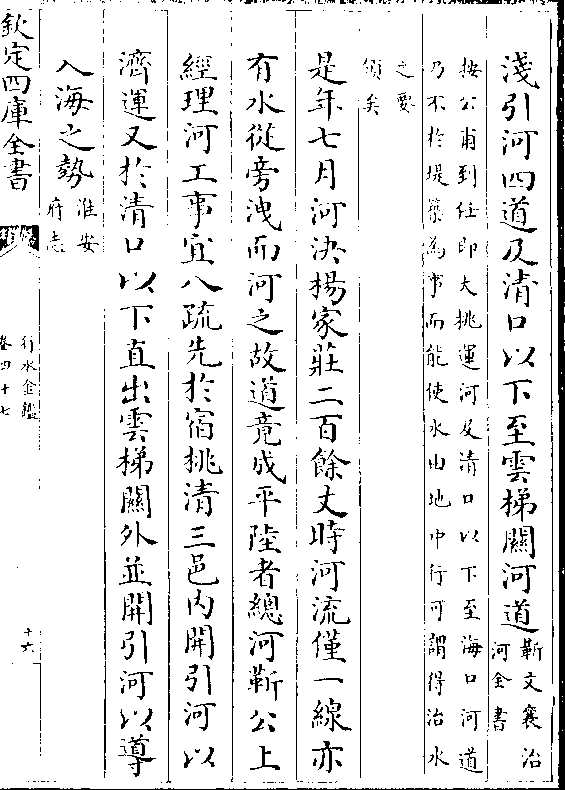 淺引河四道及清口以下至雲梯關河道靳文襄治
河全書
按公甫到任即大挑運河及清口以下至海口河道
乃不於堤築為事而能使水由地中行可謂得治水
之要
領矣
是年七月河決楊家莊二百餘丈時河流僅一線亦
有水從旁洩而河之故道竟成平陸者總河靳公上
經理河工事宜八疏先於宿桃清三邑內開引河以
濟運又於清口以下直出雲梯關外並開引河以導
入海之勢淮安
府志
欽定四庫全書
行水金鑑
卷四十七
十六